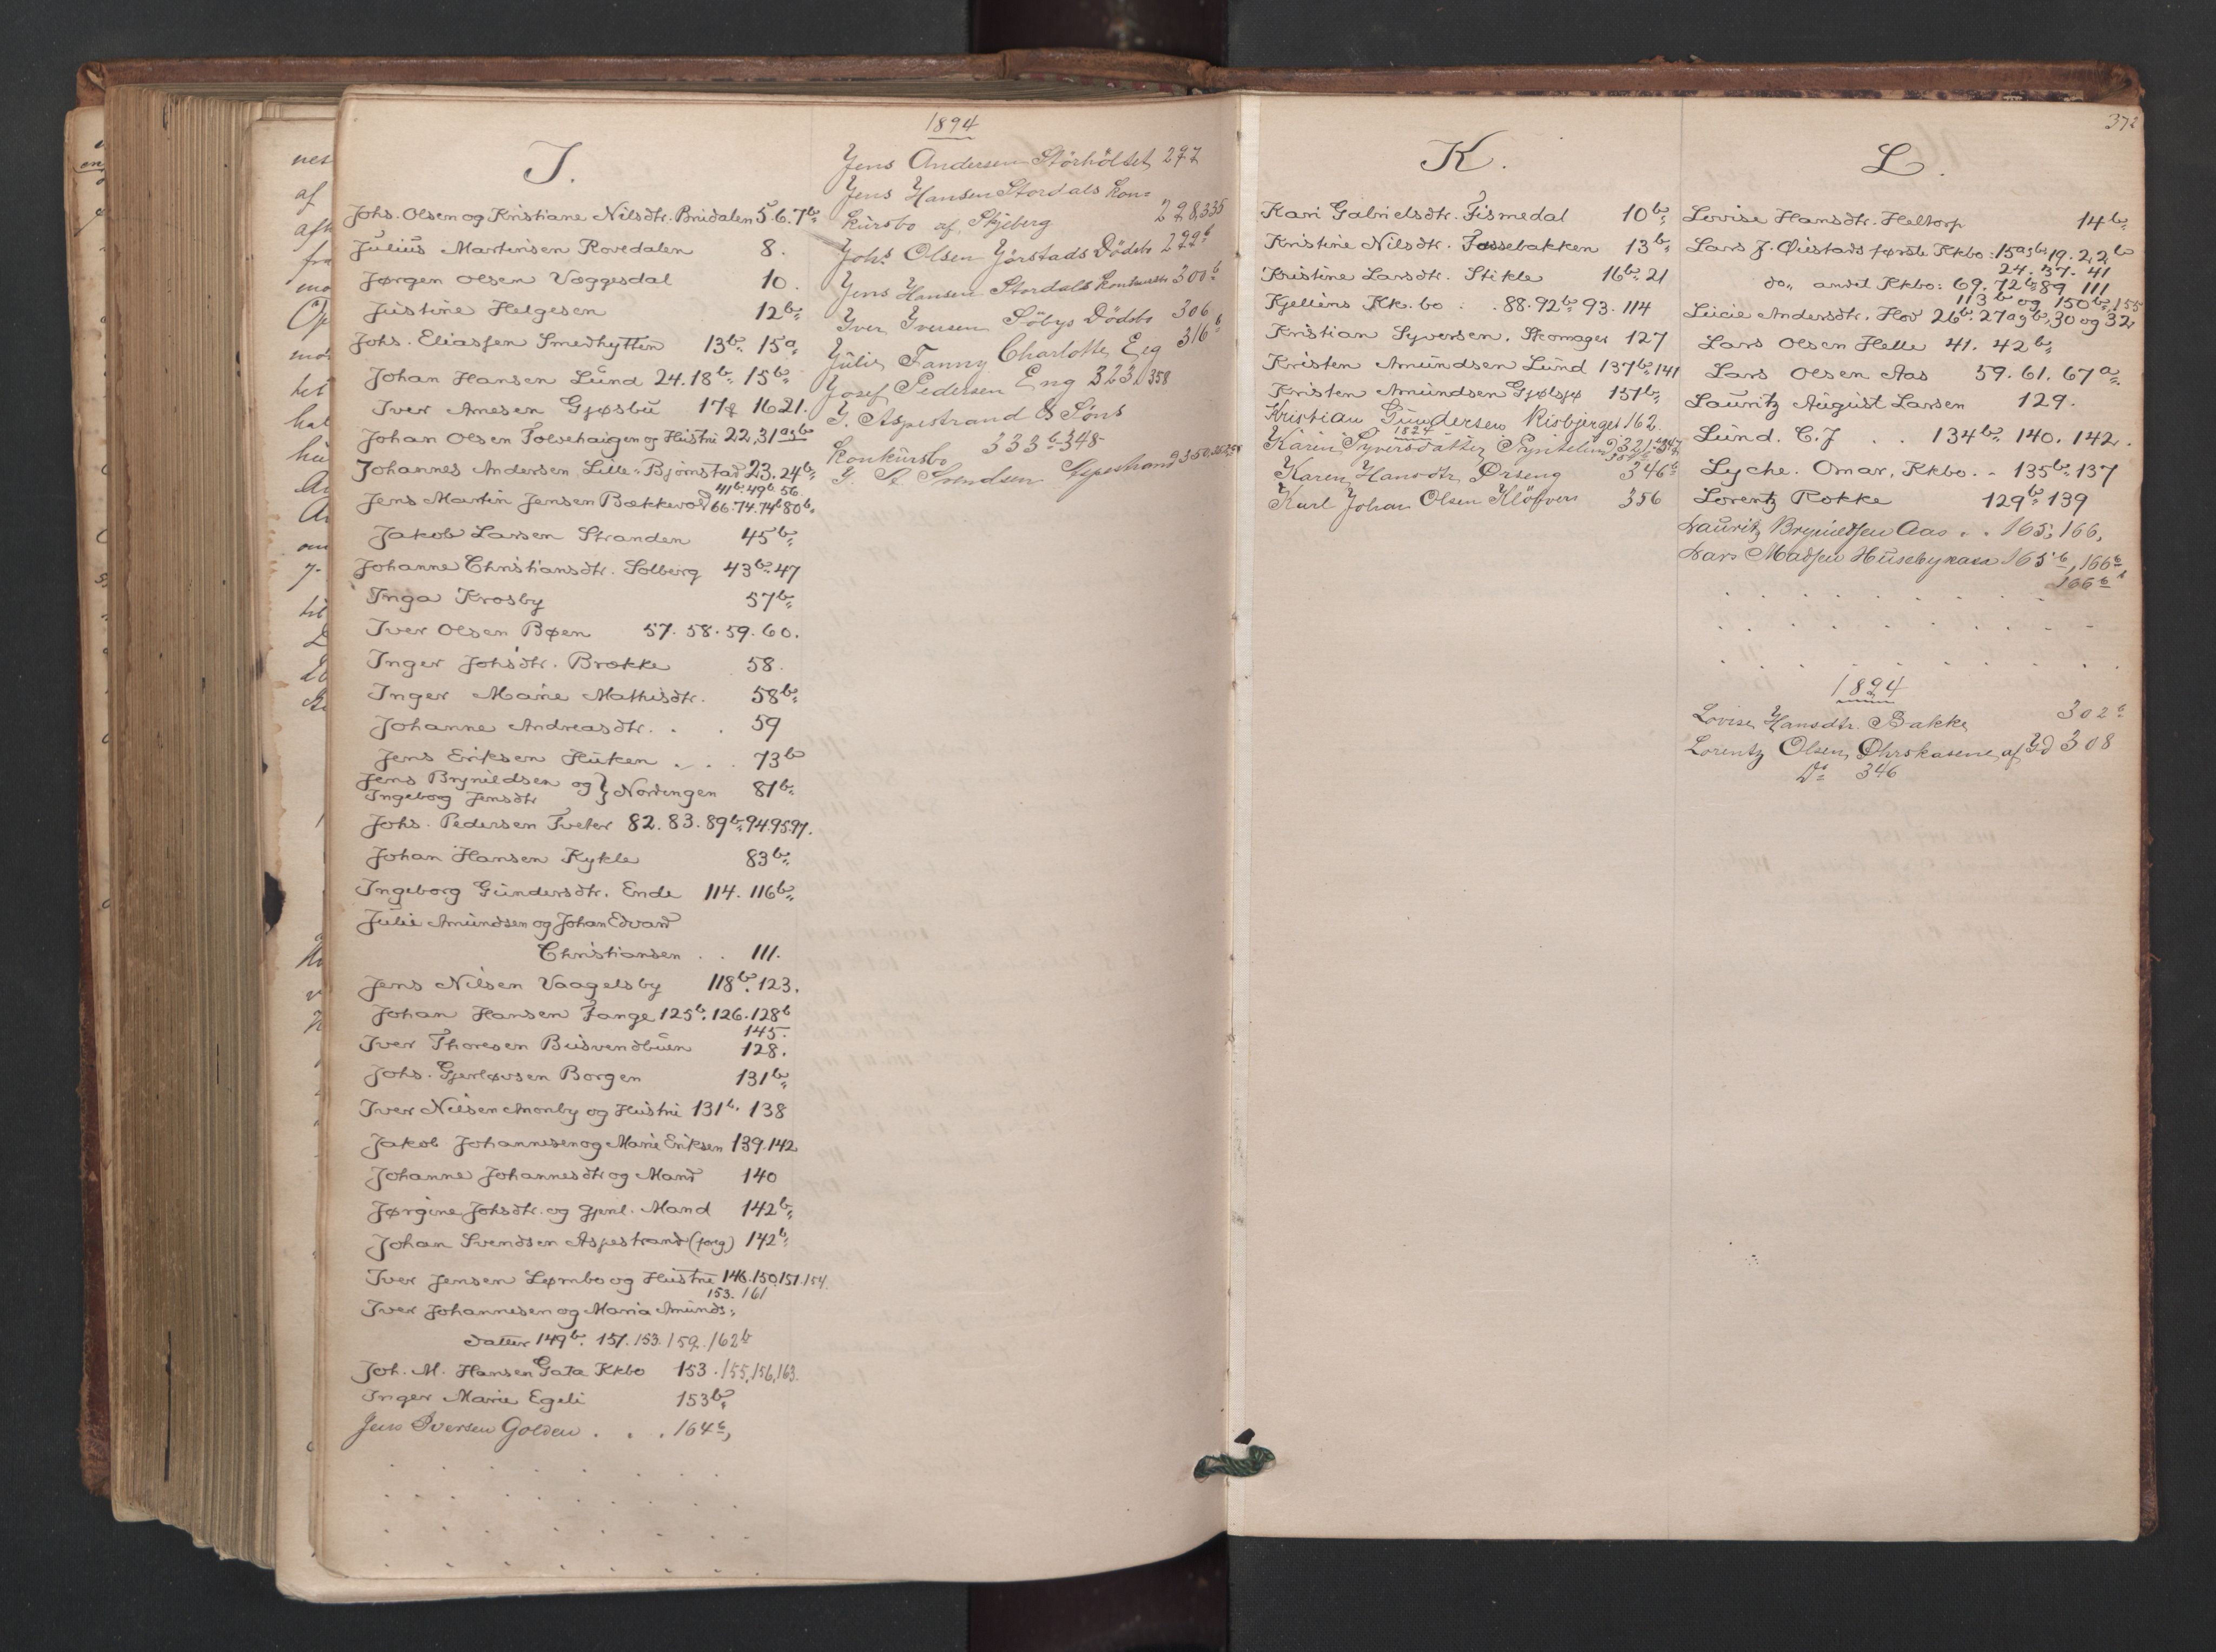 J.
Johs. Olsen og Kristiane Nilsdtr. Bridalen 5.6.7b
Julius Martinsen Rovedalen 8.
Jørgen Olsen Væggesdal 10.
Justine Helgesen 12b
Johs. Eliassen Smedhytten 13b. 15a
Johan Hansen Lund 24.18b. 15b
Iver Arnesen Gjøsbu 17 & 16 21.
Johan Olsen Tolsehaigen og Hustru 22.31 a og b
Johannes Andersen Lille-Bjørnstad 23. 24b
41b. 49b. 56
Jens Martin Jensen Bækkevold 66.74.74b 80b.
Jakob Larsen Stranden 45b
Johanne Christiansdtr. Solberg 43b. 47
Inga Krosby 57b
Iver Olsen Bøen 57. 58. 59. 60.
Inger Johsdtr. Brække 58.
Inger Marie Mathisdtr. 58b
Johanne Andreasdtr. . . 59
Jens Eriksen Huken . . . 73b
Jens Brynildsen og } Nordengen 81b
Ingeborg Jensdtr
Johs. Pedersen Tveter 82. 83. 89b. 94.95.97.
Johan Hansen Kykle 83b
Ingeborg Gundersdtr. Ende 114. 116b
Julie Amundsen og Johan Edvard
Christiansen . . 111.
Jens Nilsen Vaagelsby 118b. 123.
Johan Hansen Tange 125b. 126. 128b
145.
Iver Thoresen Busvendbuen 128.
Johs. Gjerløvsen Borgen 131b
Iver Nilsen Monby og Hustru 131b. 138
Jakob Johannesen og Marie Eriksen 139.142
Johanne Johannesdtr og Mand 140
Jørgine Johsdtr. og gjenl. Mand 142b
Johan Svendsen Aspestrand 142b
Iver Jensen Lømbo og Hustru 146.150.151.154.
153. 161
Iver Johannesen og Maria Amunds-
datter 149b. 151. 153. 159. 162b
Joh. M. Hansen Gata Kkbo 153. 155, 156, 163.
Inger Marie Egeli 153b
Jens Iversen Golden . . . 164b,
1894
Jens Andersen Störholtet 297
Jens Hansen Stordals Kon-
kursbo af Skjeberg 298,335
Johs Olsen Jörstads Dödsbo 299b
Jens Hansen Stordals Konkursbo 300b
Iver Iversen Söbys Dödsbo 306
Julie Fanny Charlotte Eeg 316b
Josef Pedersen Eng 323. 358
J. Aspestrand & Söns
Konkursbo 333b-348-
J. St. Svendsen Aspestrand 350,
K.
Kari Gabrielsdtr. Tismedal 10b
Kristine Nilsdtr. Fossebakken 13b
Kristine Larsdtr. Stikle 16b. 21
Kjelléns Kk. bo . . 88. 92b. 93. 114
Kristian Syversen, Skomager 127
Kristen Amundsen Lund 137b. 141
Kristen Amundsen Gjølsjø 151b
Kristian Gundersen Risbjerget 162.
1894
Karen Syversdatter 321b 347
Karen Hansdtr Ørseng 346b
Karl Johan Olsen Klöfven 356
372
L.
Lovise Hansdtr. Heltorp 14b
Lars J. Øiestads første Kkbo: 15 a og b 19. 22b
24. 37. 41
do„ andet Kkbo: 69. 72b 89 111
113b og 150b, 155
Lucie Andersdtr. Hov 26b. 27 a og b, 30 og 32
Lars Olsen Helle 41. 42b
Lars Olsen Aas 59. 61. 67a
Lauritz August Larsen 129.
Lund. C. J . . 134b. 140. 142.
Lyche. Omar, Kkbo. . 135b. 137
Lorentz Rokke 129b. 139
Lauritz Brynildsen Aas . . 165, 166,
Lars Madsen Husebykasa 165b, 166b,
166b
1894
Lovise Hansdtr. Bakke 302b
Lorentz Olsen Øhrskasene, af Id 308
Do 346